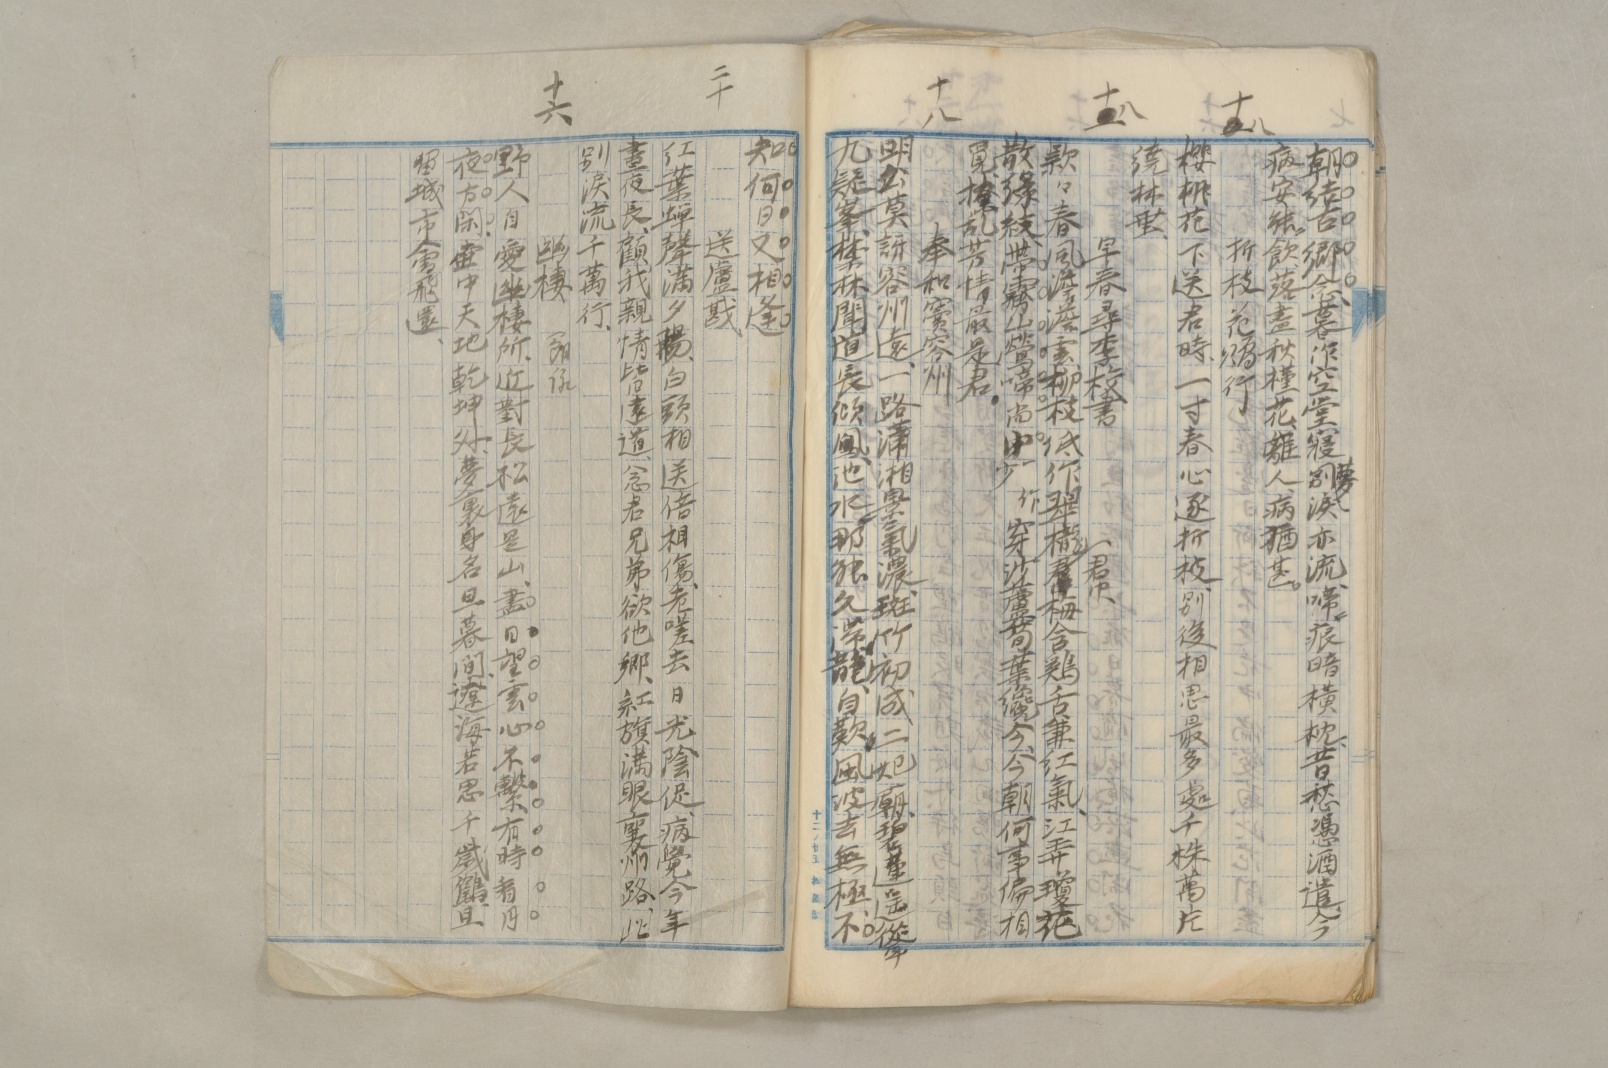 十五八
十五八
十八
朝結古鄉念、暮作空堂寢、夢別淚亦流、啼痕暗橫枕、昔愁憑酒遣、今
病安能飲、落盡秋槿花、離人病猶甚。
折枝花贈行
櫻桃花下送君時、一寸春心逐折枝、別後相思最多處、千株萬片
繞林垂、
早春尋李校書
款々春風澹澹雲、柳枝低作翠櫳裙、梅含鷄舌兼紅氣、江弄瓊花
散綠紋、帶霧山鶯啼尚少、穿沙蘆筍葉纔分、今朝何事偏相
覓、撩亂芳情最是君。
奉和竇容州
明公莫訝容州遠、一路瀟湘景氣濃、斑竹初成二妃廟、碧蓮遙聳
九疑峯、禁林聞道長傾鳳、池水那能久滯龍、自歎風波去無極、不
二十
十六
知何日又相逢
送盧戡
紅葉蟬聲滿夕陽、白頭相送倍相傷、老嗟去日光陰促、病覺今年
晝夜長、顧我親情皆遠道、念君兄弟欲他鄉、紅旗滿眼襄州路、此
別淚流千萬行、
幽棲
野人自愛幽棲所、近對長松遠是山、盡日望雲心不繫、有時看月
夜方閑、壺中天地乾坤外、夢裏身名旦暮間、遼海若思千歲鶴、且
留城市會飛還、